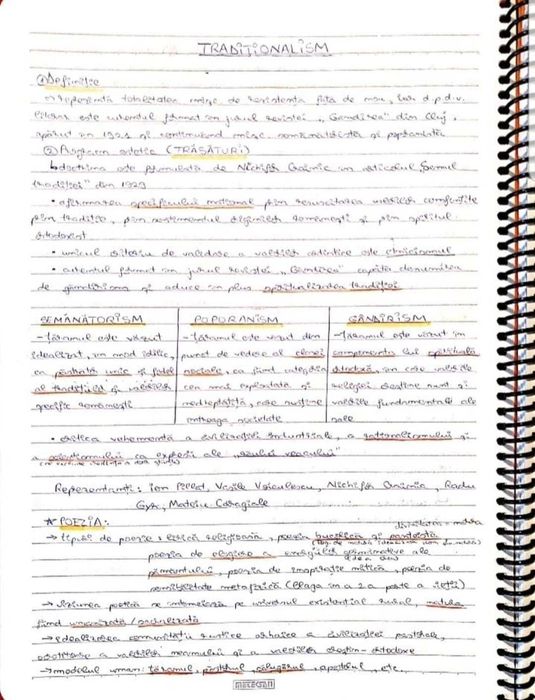 TRADIȚIONALISM
① Definiție
→ reprezintă totalitatea mișc. de rezistență față de mod., iar d.p.d.v.
literar este curentul format în jurul revistei „Gândirea" din Cluj,
apărut în 1921 și continuând mișc. semănătoristă și poporanistă
② Program estetic (TRĂSĂTURI)
↳ doctrina este formulată de Nichifor Crainic în articolul „Sensul
tradiției" din 1929
• afirmarea specificului național prin resuscitarea valorilor
prin tradiție, prin sentimentul originilor românești și prin spiritul
ortodoxist
• unicul criteriu de validare a valorilor este etnicismul
• curentul format în jurul revistei „Gândirea" capătă denumirea
de gândirism și aduce în plus spiritualizarea tradiției
SEMĂNĂTORISM
- țăranul este văzut
idealizat, în mod idilic,
ca păstrător unic și fidel
al tradițiilor și valorilor
specific românești
POPORANISM
- țăranul este văzut din
punct de vedere al clasei
sociale, ca fiind categoria
cea mai exploatată și
nedreptățită, care susține
întreaga societate
GÂNDIRISM
- țăranul este văzut în
componenta lui spirituală
ortodoxă, în care valorile
religiei creștine sunt și
valorile fundamentale ale
sale
• critica vehementă a civilizației industriale, a raționalismului și
a ca expresii ale „răului veacului"
Reprezentanți: Ion Pillat, Vasile Voiculescu, Nichifor Crainic, Radu
Gyr, Mateiu Caragiale
* POEZIA:
→ tipuri de poezie: lirică religioasă, poezia bucolică și panteistă
poezia de elogiere a energiilor germinative ale
pământului, poezia de inspirație mitică, poezia de
sensibilitate metafizică (Blaga în a 2-a parte a vieții)
→ viziunea poetică se întemeiază pe universul existențial rural, natura
fiind umanizată / sacralizată
→ idealizarea comunității rustice arhaice a civilizației pastorale,
ocrotitoare a valorilor neamului și a valorilor creștin-ortodoxe
→ modelul uman: țăranul, păstorul, călugărul, apostolul, etc.